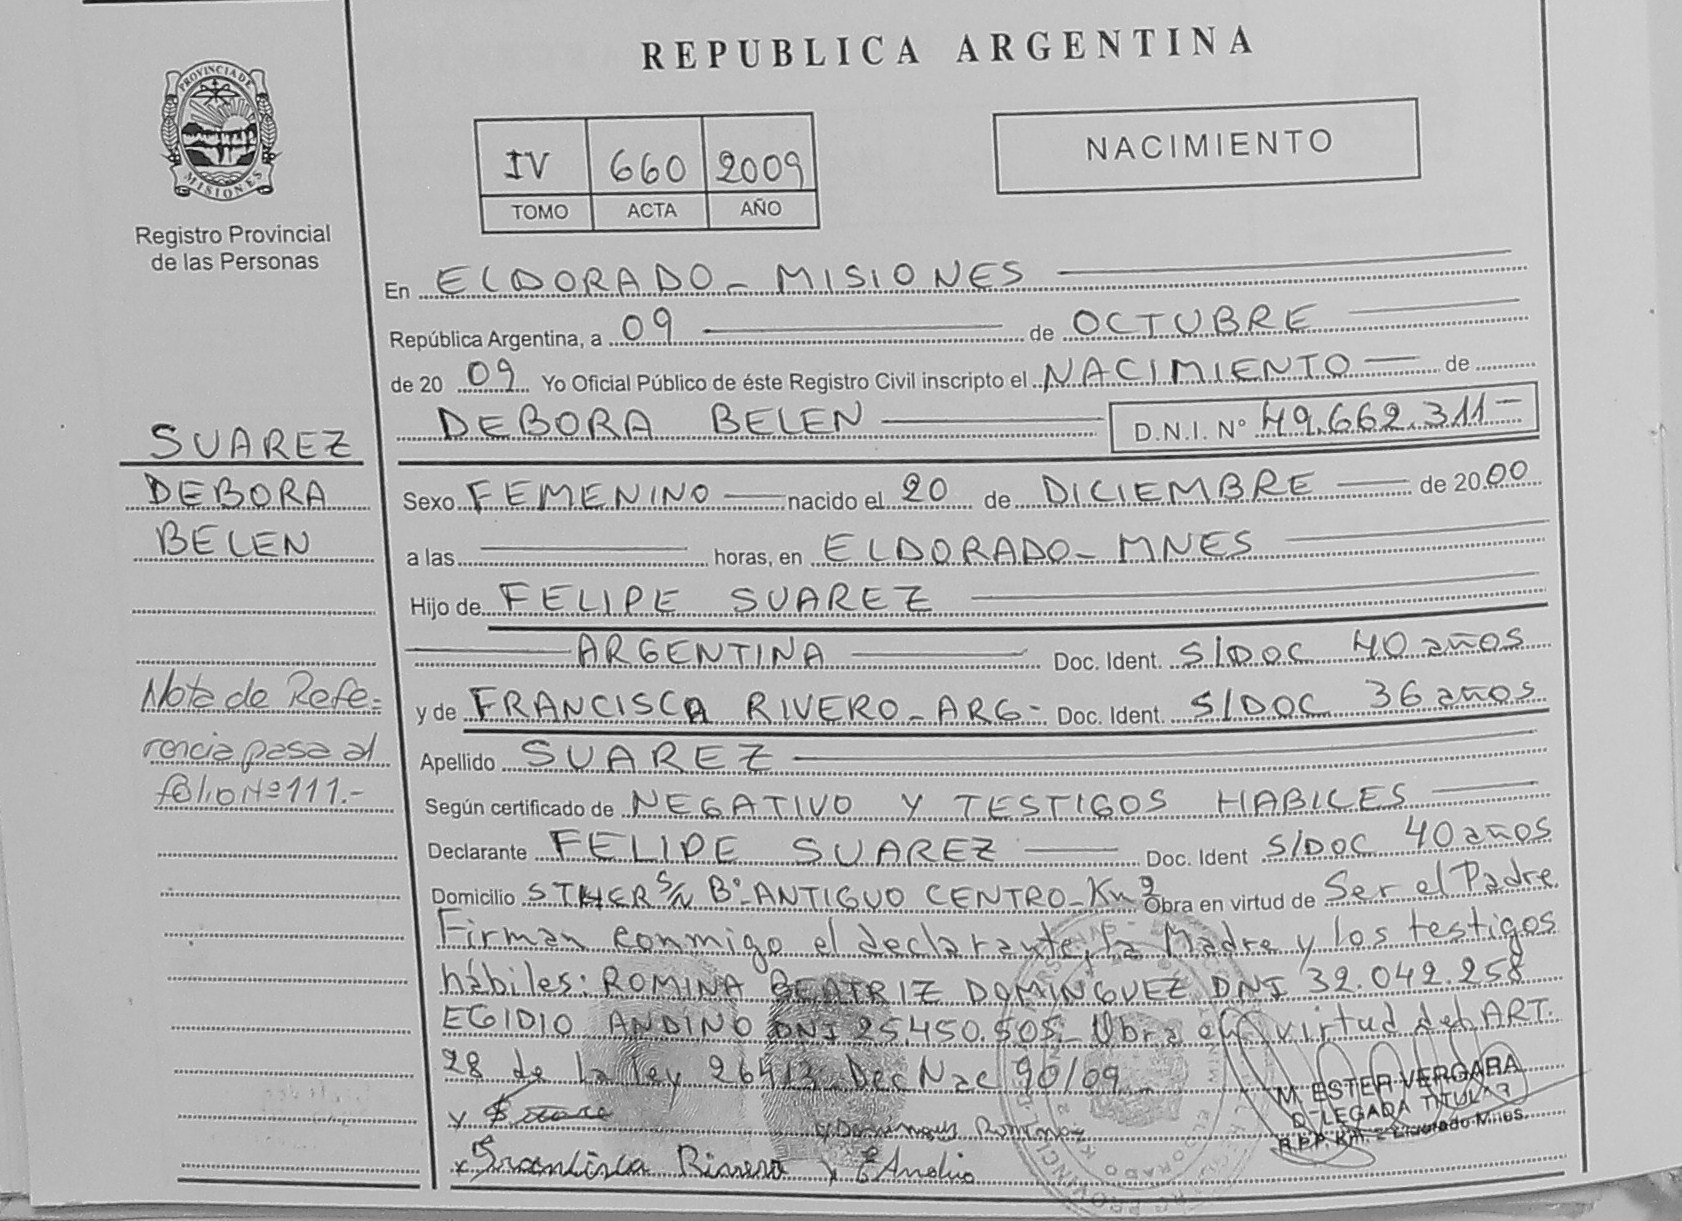 REPUBLICA ARGENTINA
PROVINCIA DE
MISIONES
Registro Provincial
de las Personas
IV 660 2009
TOMO ACTA AÑO
NACIMIENTO
En ELDORADO - MISIONES
República Argentina, a 09 de OCTUBRE
de 20 09 Yo Oficial Público de éste Registro Civil inscripto el NACIMIENTO de
DEBORA BELEN D.N.I. N° 49.662.311-
SUAREZ
DEBORA
BELEN
Sexo FEMENINO nacido el 20 de DICIEMBRE de 2000
a las horas, en ELDORADO - MNES
Hijo de FELIPE SUAREZ
ARGENTINA Doc. Ident. S/DOC 40 años
y de FRANCISCA RIVERO - ARG - Doc. Ident. S/DOC 36 años
Nota de Refe=
rencia pasa al
folio Nº 111.-
Apellido SUAREZ
Según certificado de NEGATIVO Y TESTIGOS HABILES
Declarante FELIPE SUAREZ Doc. Ident S/DOC 40 años
Domicilio S/N Bº ANTIGUO CENTRO - Km 9 Obra en virtud de Ser el Padre
Firman conmigo el declarante, la Madre y los testigos
hábiles: ROMINA BEATRIZ DOMINGUEZ DNI 32.042.258
EGIDIO ANDINO DNI 25.450.505 - Obra en virtud del ART.
28 de la ley 26413 - Dec Nac 90/09 -
M. ESTER VERGARA
DELEGADA TITULAR
Eldorado-Mnes.